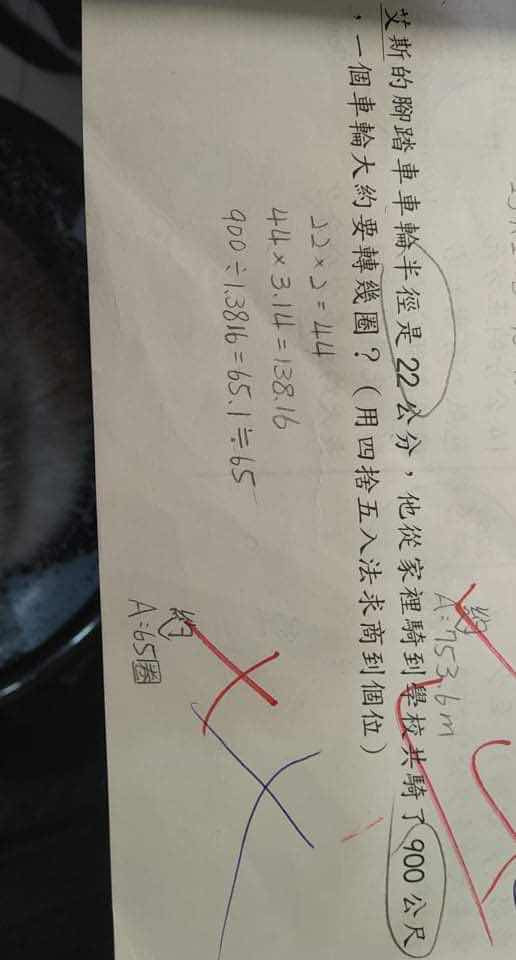 艾斯的腳踏車車輪半徑是22公分，他從家裡騎到學校共騎了900公尺
，一個車輪大約要轉幾圈？（用四捨五入法求商到個位）
22×2=44
44×3.14=138.16
900÷1.3816=65.1≒65
約
A:65圈
約
A:753.6m